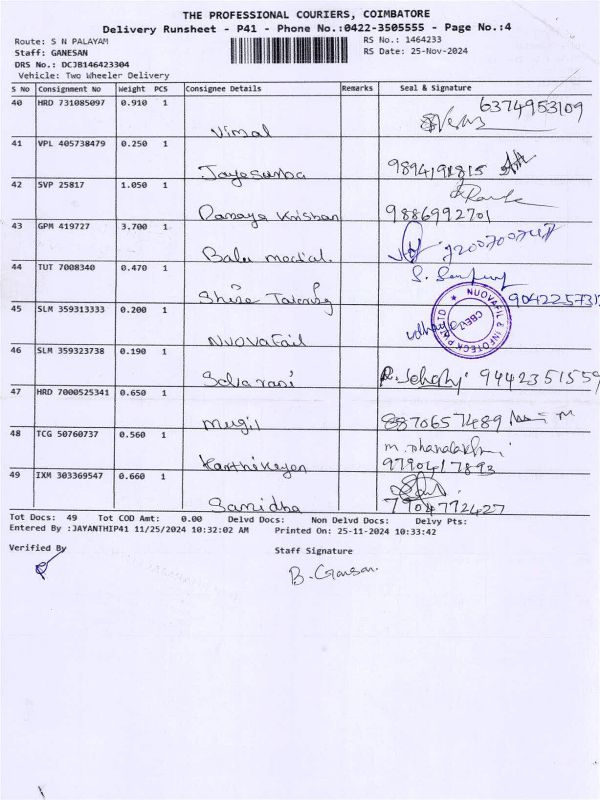 THE PROFESSIONAL COURIERS, COIMBATORE
Delivery Runsheet - P41 - Phone No.:0422-3505555 - Page No.:4
Route: S N PALAYAM
RS No.: 1464233
Staff: GANESAN
RS Date: 25-Nov-2024
DRS No.: DCJB146423304
Vehicle: Two Wheeler Delivery
S No Consignment No Weight PCS Consignee Details Remarks Seal & Signature
40 HRD 731085097 0.910 1 Vimal 6374953109
41 VPL 405738479 0.250 1 Jayasudha 9894191815
42 SVP 25817 1.050 1 Danaya Krishan 9886992701
43 GPM 419727 3.700 1 Balu medical
44 TUT 7008340 0.470 1 Shine
45 SLM 359313333 0.200 1 NUOVAFail udhaya
NUOVAFIL & INFOTECK PVT LTD
CBE-7
46 SLM 359323738 0.190 1 9442351559
47 HRD 7000525341 0.650 1 Mugil 8870657489
48 TCG 50760737 0.560 1 Karthikeyan 9790417893
49 IXM 303369547 0.660 1 Samidha 7904772427
Tot Docs: 49 Tot COD Amt: 0.00 Delvd Docs: Non Delvd Docs: Delvy Pts:
Entered By :JAYANTHIP41 11/25/2024 10:32:02 AM Printed On: 25-11-2024 10:33:42
Verified By
Staff Signature
B. Ganesan